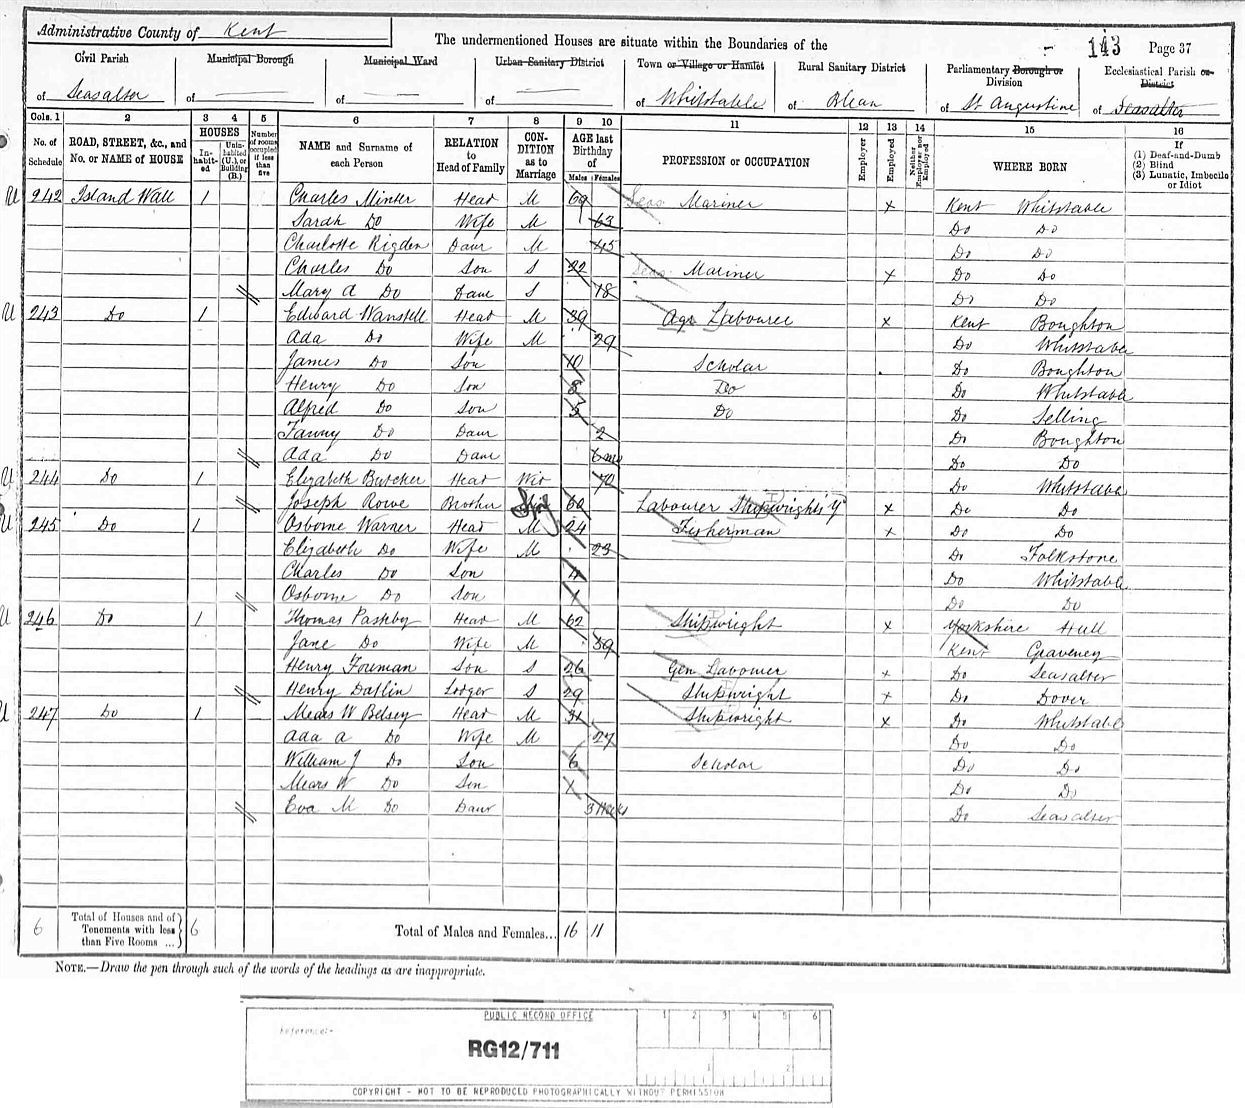 Administrative County of Kent
The undermentioned Houses are situate within the Boundaries of the
143 Page 37
Civil Parish of Seasalter
Municipal Borough of
Municipal Ward of
Urban Sanitary District of
Town or Village or Hamlet of Whitstable
Rural Sanitary District of Blean
Parliamentary Borough or Division of St Augustine
Ecclesiastical Parish or District of Seasalter
Cols. 1 2 3 4 5 6 7 8 9 10 11 12 13 14 15 16
No. of Schedule
ROAD, STREET, &c., and No. or NAME of HOUSE
HOUSES
Inhabited
Uninhabited (U.), or Building (B.)
Number of rooms occupied if less than five
NAME and Surname of each Person
RELATION to Head of Family
CONDITION as to Marriage
AGE last Birthday of
Males Females
PROFESSION or OCCUPATION
Employer
Employed
Neither Employer nor Employed
WHERE BORN
If (1) Deaf-and-Dumb (2) Blind (3) Lunatic, Imbecile or Idiot
242 Island Wall 1 Charles Minter Head M 69 Mariner x Kent Whitstable
Sarah Do Wife M 63 Do Do
Charlotte Rigden Daur M 45 Do Do
Charles Do Son S 22 Mariner x Do Do
Mary A Do Daur S 18 Do Do
243 Do 1 Edward Wanstell Head M 39 Agr Labourer x Kent Boughton
Ada Do Wife M 29 Do Whitstable
James Do Son 10 Scholar Do Boughton
Henry Do Son 8 Do Do Whitstable
Alfred Do Son 5 Do Do Selling
Fanny Do Daur 2 Do Boughton
Ada Do Daur 6 mo Do Do
244 Do 1 Elizabeth Butcher Head Wid 70 Do Whitstable
Joseph Rowe Brother 60 Labourer Shipwright's Y x Do Do
245 Do 1 Osborne Warner Head M 24 Fisherman x Do Do
Elizabeth Do Wife M 23 Do Folkstone
Charles Do Son Do Whitstable
Osborne Do Son 1 Do Do
246 Do 1 Thomas Pashby Head M 62 Shipwright x Yorkshire Hull
Jane Do Wife M 59 Kent Graveney
Henry Foreman Son S 26 Gen Labourer x Do Seasalter
Henry Datlin Lodger S 29 Shipwright x Do Dover
247 Do 1 Mears W Belsey Head M 31 Shipwright x Do Whitstable
Ada A Do Wife M 27 Do Do
William J Do Son 6 Scholar Do Do
Mears W Do Son 1 Do Do
Eva M Do Daur 3 Weeks Do Seasalter
6 Total of Houses and of Tenements with less than Five Rooms ... 6 Total of Males and Females... 16 11
NOTE.—Draw the pen through such of the words of the headings as are inappropriate.
PUBLIC RECORD OFFICE
Reference:-
RG12/711
1 2 3 4 5 6
1 2
COPYRIGHT - NOT TO BE REPRODUCED PHOTOGRAPHICALLY WITHOUT PERMISSION